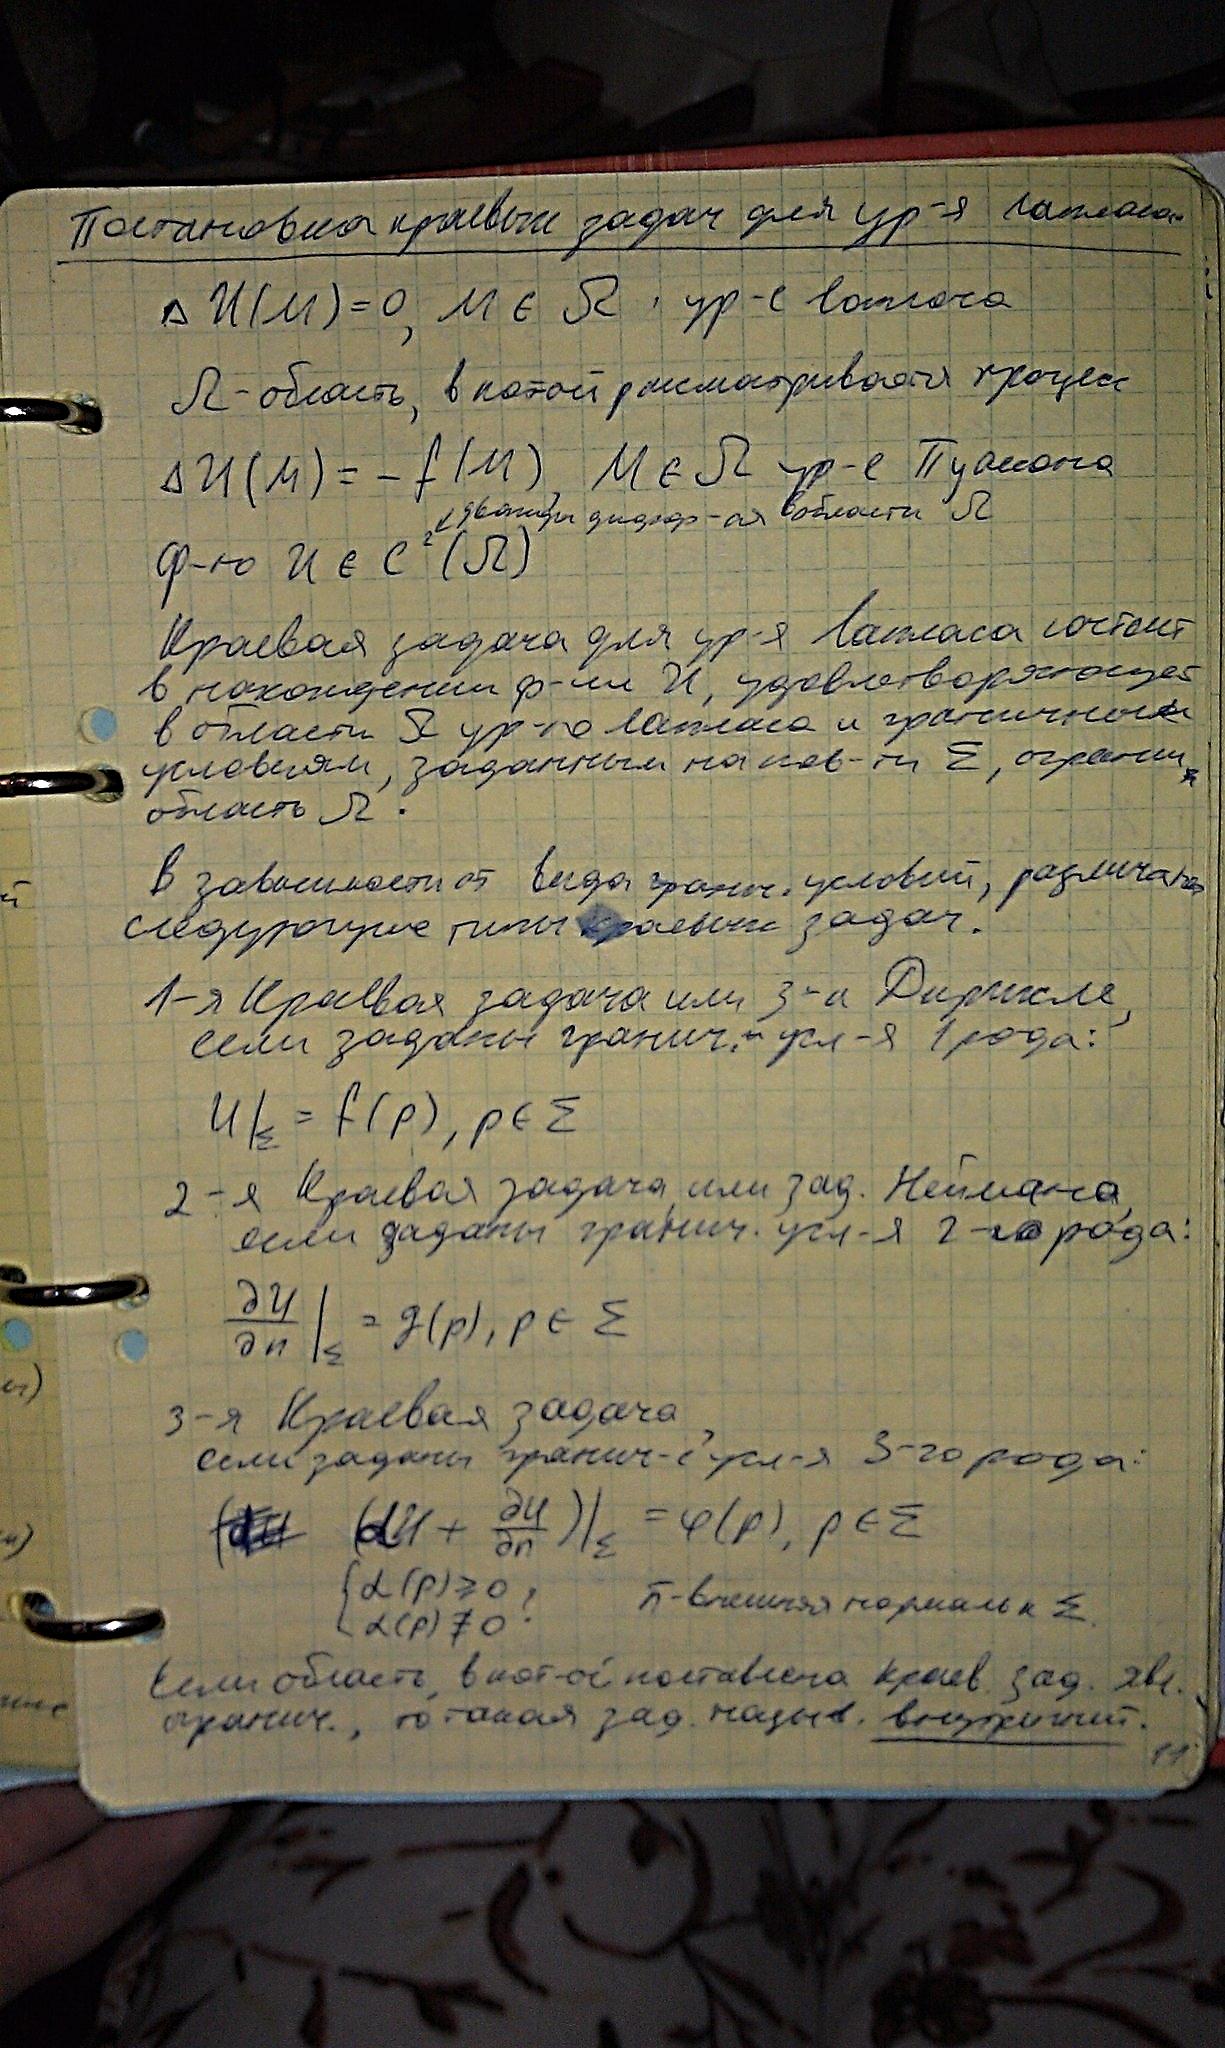 Постановка краевых задач для ур-я Лапласа
Δ U(M) = 0, M ∈ Ω, ур-е Лапласа
Ω - область, в котой рассматривается процесс
Δ U(M) = - f(M), M ∈ Ω ур-е Пуассона
дважды дифф-ая в области Ω
Ф-ю U ∈ C²(Ω)
Краевая задача для ур-я Лапласа состоит
в нахождении ф-ии U, удовлетворяющей
в области Ω ур-ю Лапласа и граничным
условиям, заданным на пов-ти Σ, огранич.
область Ω.
В зависимости от вида гранич. условий, различают
следующие типы краевых задач.
1-я Краевая задача или з-а Дирихле,
если заданы гранич. усл-я 1 рода:
U|Σ = f(p), p ∈ Σ
2-я Краевая задача или зад. Неймана,
если заданы гранич. усл-я 2-го рода:
∂U/∂n |Σ = g(p), p ∈ Σ
3-я Краевая задача,
если заданы гранич-е усл-я 3-го рода:
(αU + ∂U/∂n)|Σ = φ(p), p ∈ Σ
{α(p) ≥ 0;
α(p) ≢ 0. n̄ - внешняя нормаль к Σ.
Если область, в кот-ой поставлена краев. зад. явл.
огранич., то такая зад. назыв. внутренней.
11